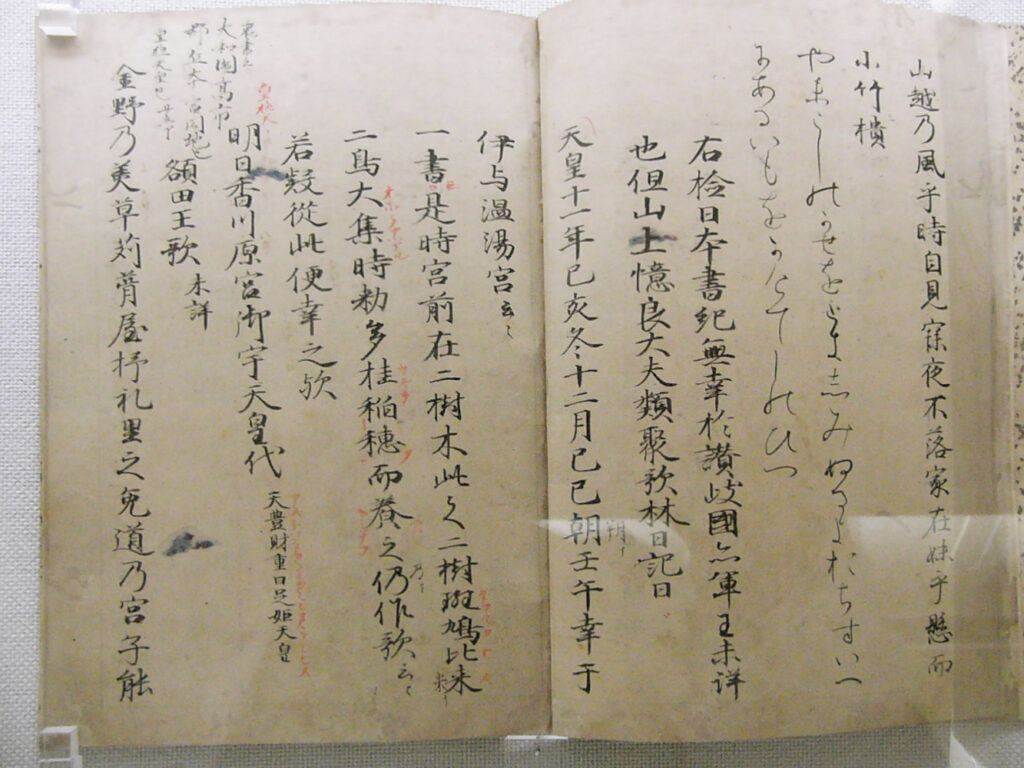 山越乃風乎時自見寐夜不落家在妹乎懸而
小竹樻
やまこしのかせをときしみぬるよおちすいへ
にあるいもをかけてしのひつ
右検日本書紀無幸於讃岐國亦軍王未詳
也但山上憶良大夫類聚歌林曰記曰
天皇十一年己亥冬十二月己巳朝壬午幸于
朔イ
伊与温湯宮云々
一書是時宮前在二樹木此之二樹斑鳩比米
二鳥大集時勅多桂稲穂而養之仍作歌云々
乃イ
米イ
若疑從此便幸之歟
明日香川原宮御宇天皇代 天豊財重日足姫天皇
皇極天
大和國高市
額田王歌 未詳
金野乃美草苅葺屋杼礼里之兔道乃宮子能